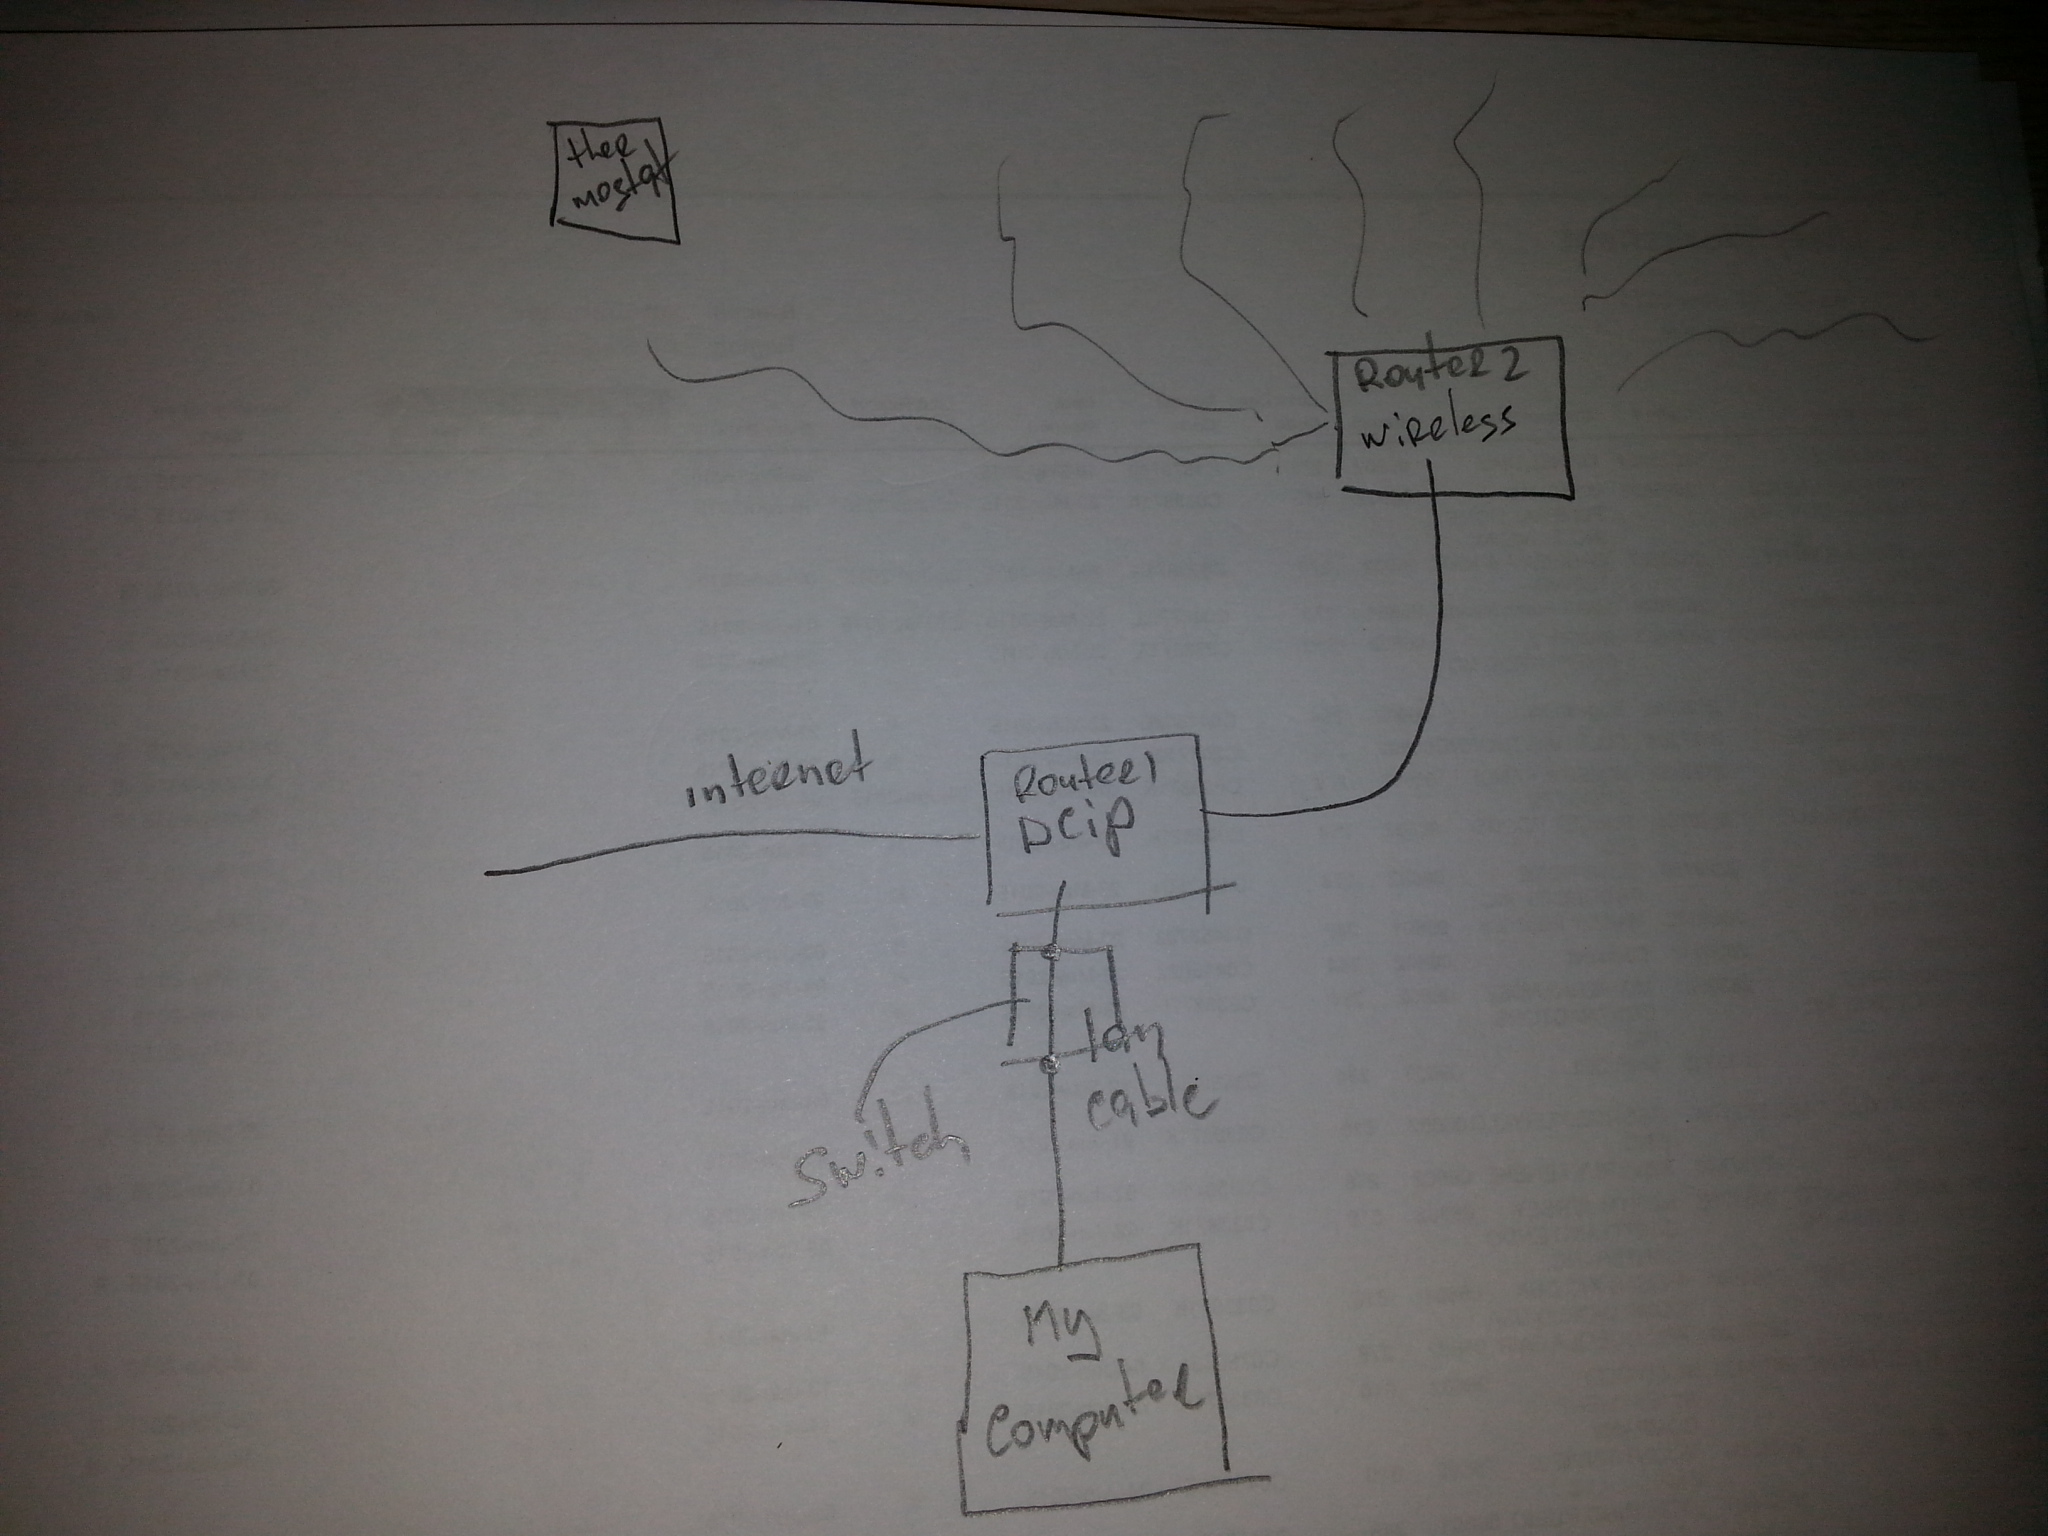 ther
mostat
Router 2
wireless
internet
Router 1
DCip
lan
cable
Switch
My
Computer